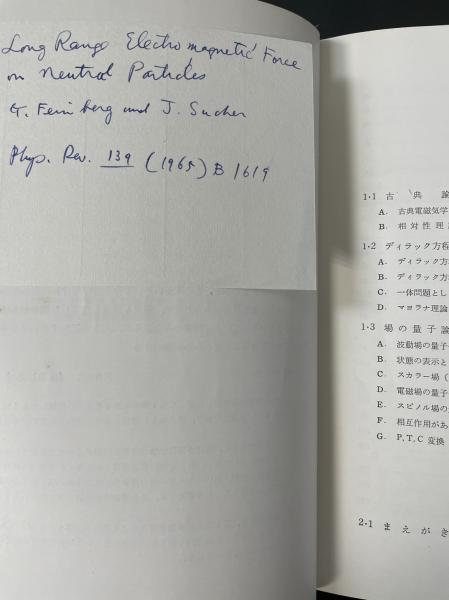 Long Range Electromagnetic Force
on Neutral Particles
G. Feinberg and J. Sucher
Phys. Rev. 139 (1965) B 1619
1・1 古典論
A. 古典電磁気学
B. 相対性理
1・2 ディラック方程
A. ディラック方
B. ディラック方
C. 一体問題とし
D. マヨラナ理論
1・3 場の量子論
A. 波動場の量子
B. 状態の表示と
C. スカラー場(
D. 電磁場の量子
E. スピノル場の
F. 相互作用があ
G. P,T,C 変換
2・1 まえがき